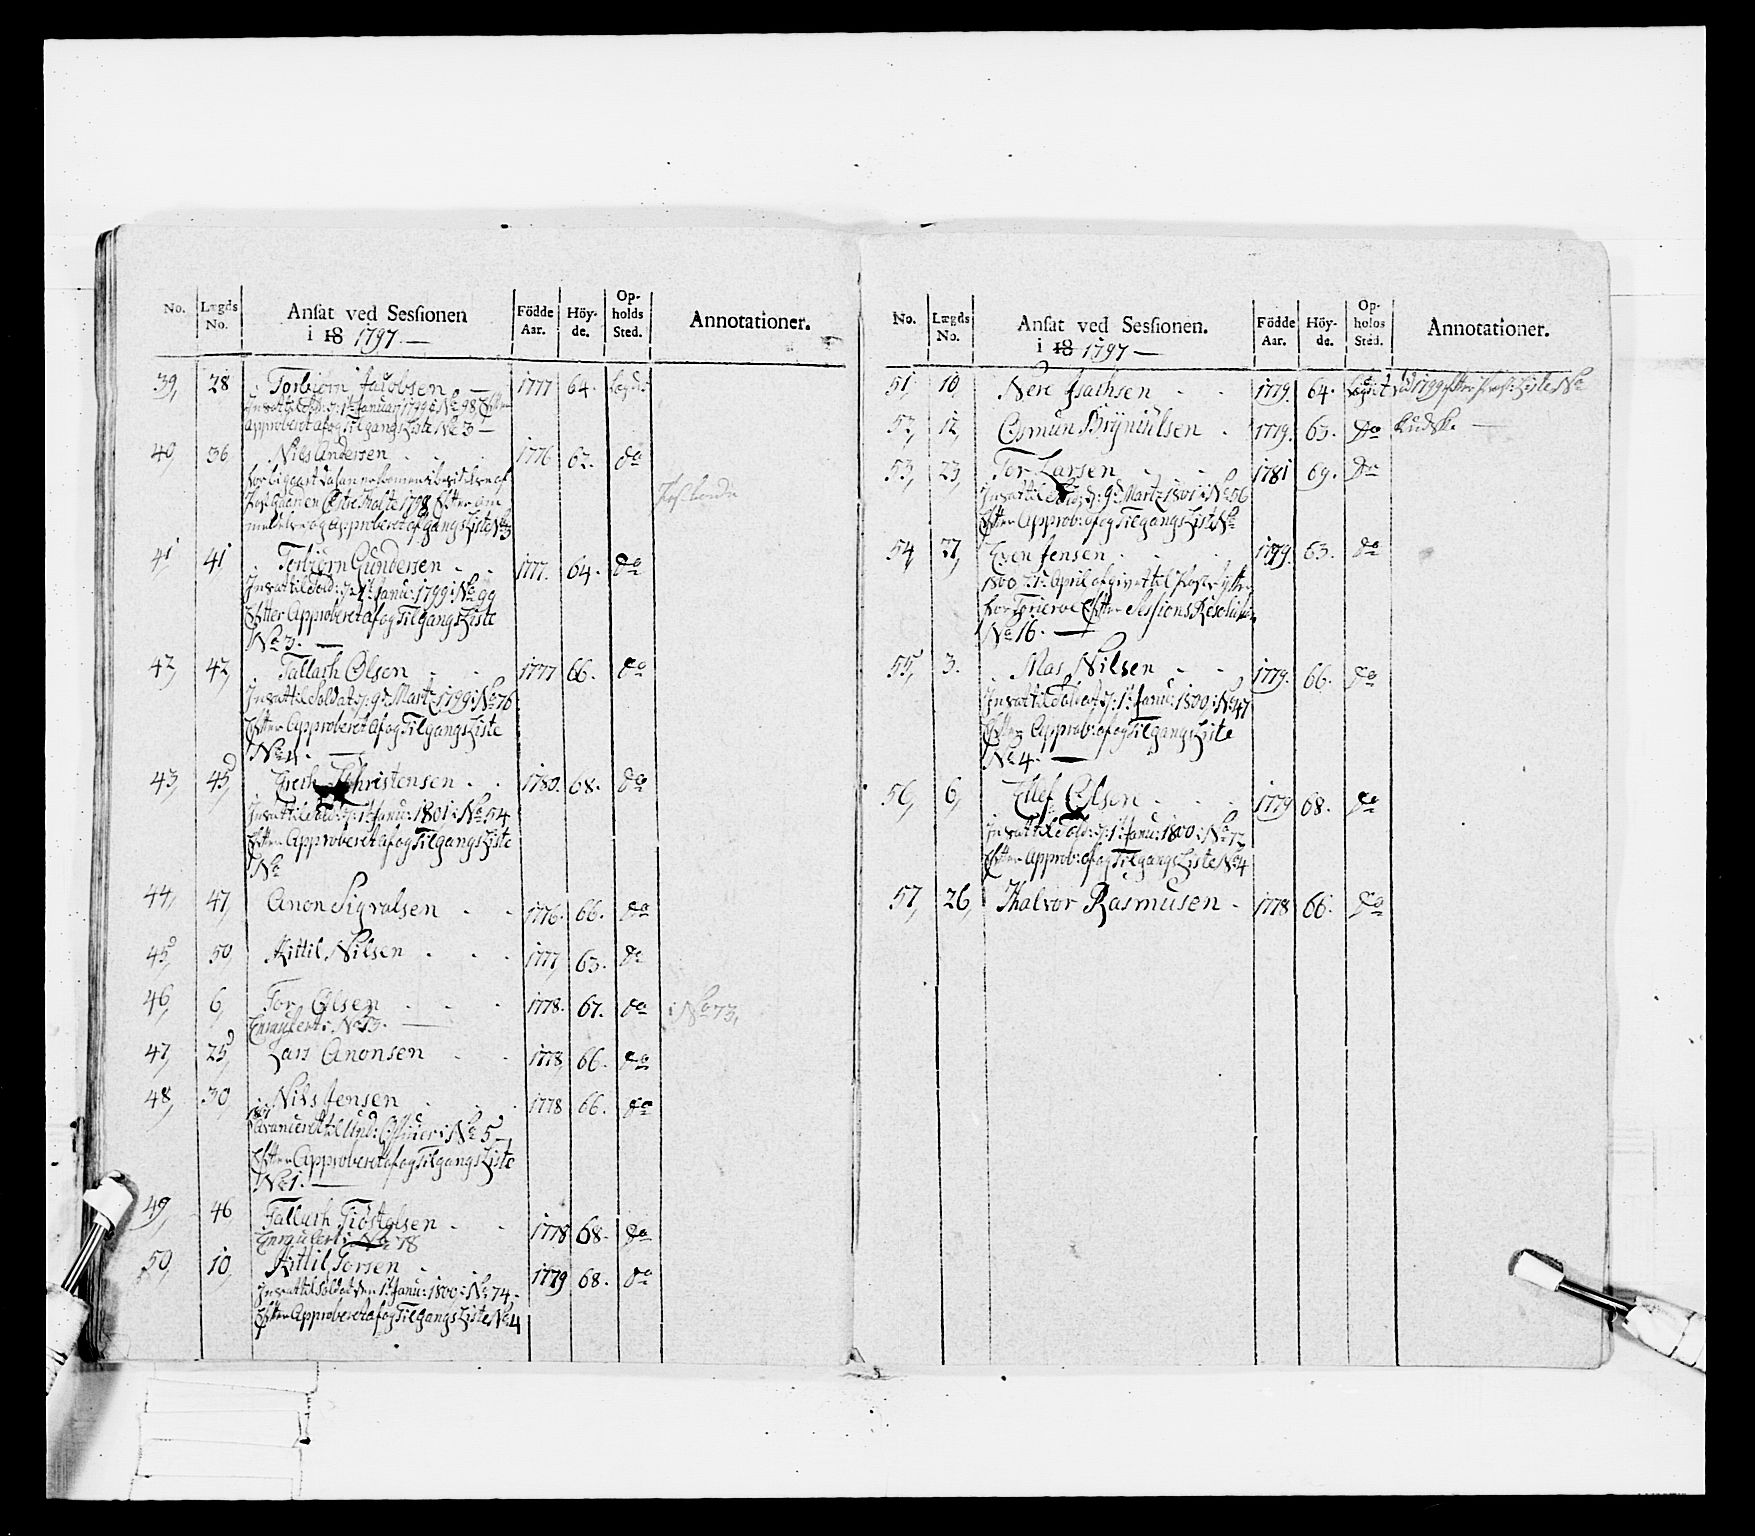 No. Lægds No. Ansat ved Sessionen i 18 1797. — Födde Aar. Höyde. Opholds Sted. Annotationer.
39, 28 Torbiørn Jacobsen — 1777 64. Lægdet
Jnsat til Sold: d: 1te Januar 1799 i No 98 Efter
Approberet af og Tilgangs Liste No 3 —
40, 36 Nils Andersen 1776 62. do
1798 Efter
af gangs Liste No 3
41, 41 Torbiørn Gundersen 1777. 64. do
Jnsat til Sold: d: 1te Janu: 1799 i No 99
Efter Approberet af og Tilgangs Liste
No 3. —
42, 42, Tallach Olsen 1777 66. do
Jnsat til Soldat d: 9de Martz 1799 i No 76
Efter Approberet af og Tilgangs Liste
No 4. —
43, 45, Christensen 1780. 68. do
Jnsat til Sold: d: 1te Janu: 1801 i No 54
Efter Approberet af og Tilgangs Liste
No
44, 47, Anon Sigvalsen 1776. 66. do
45, 50 Kittil Nilsen 1777, 63. do
46, 6, Tor Olsen 1778. 67. do i No 73,
Enrulert i No 73. —
47, 25, Lars Anonsen 1778, 66. do
48, 30 Nils Jensen 1778 66. do
1801 avanceret til Und: Officier i No 5
Efter Approberet af og Tilgangs Liste
No 1. —
49, 46, Tallach Tiostelsen 1778 68. do
Enrulert i No 78
50, 10, Kittil Torsen 1779 68. do
Jnsat til Soldat den 1te Janu: 1800 i No 74.
Efter Approberet af og Tilgangs Liste No 4
No. Lægds No. Ansat ved Sessionen. i 18 1797 — Födde Aar. Höyde. Opholds Sted. Annotationer.
51, 10, Nere Jsachsen 1779. 64. Lægdet 1799 efter Liste No
52, 12, Osmun Brynulsen 1779. 63. do Kudsk. —
53, 23, Tor Larsen 1781 69. do
Jnsat til Sold: d: 9de Martz 1801 i No 56
Efter Approb: af og Tilgangs List No
54, 27, Even Jensen 1779. 63. do
1800 d: 1te April afgivet til
for Efter Sessions Resolution
No 16. —
55, 3. Mas Nilsen 1779. 66. do
Jnsat til Soldat d: 1te Janu: 1800 i No 47
Efter Approb: af og Tilgangs Liste
No 4. —
56, 6, Ellef Olsen 1779 68. do
Jnsat til Sold: d: 1te Janu: 1800 i No 72
Efter Approb: af og Tilgangs Liste No 4
57, 26, Halvor Rasmusen 1778 66. do